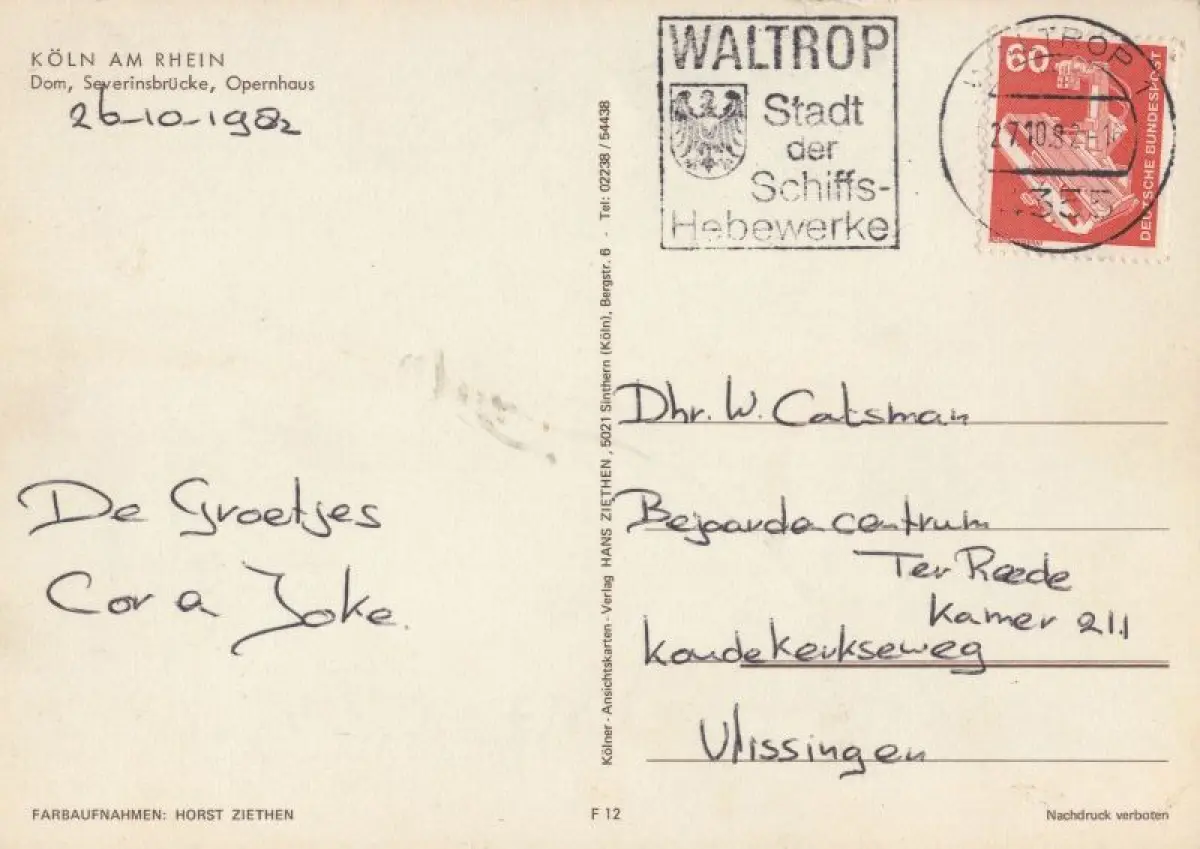 KÖLN AM RHEIN
Dom, Severinsbrücke, Opernhaus
26-10-1982
De Groetjes
Cor a Joke.
FARBAUFNAHMEN: HORST ZIETHEN
Kölner-Ansichtskarten-Verlag HANS ZIETHEN, 5021 Sinthern (Köln), Bergstr. 6 - Tel: 02238 / 54438
F 12
WALTROP
Stadt
der
Schiffs-
Hebewerke
60
DEUTSCHE BUNDESPOST
WALTROP 1
27.10.82
Dhr. W. Catsman
Bejaarde centrum
Ter Reede
Kamer 211
Koudekerkseweg
Vlissingen
Nachdruck verboten